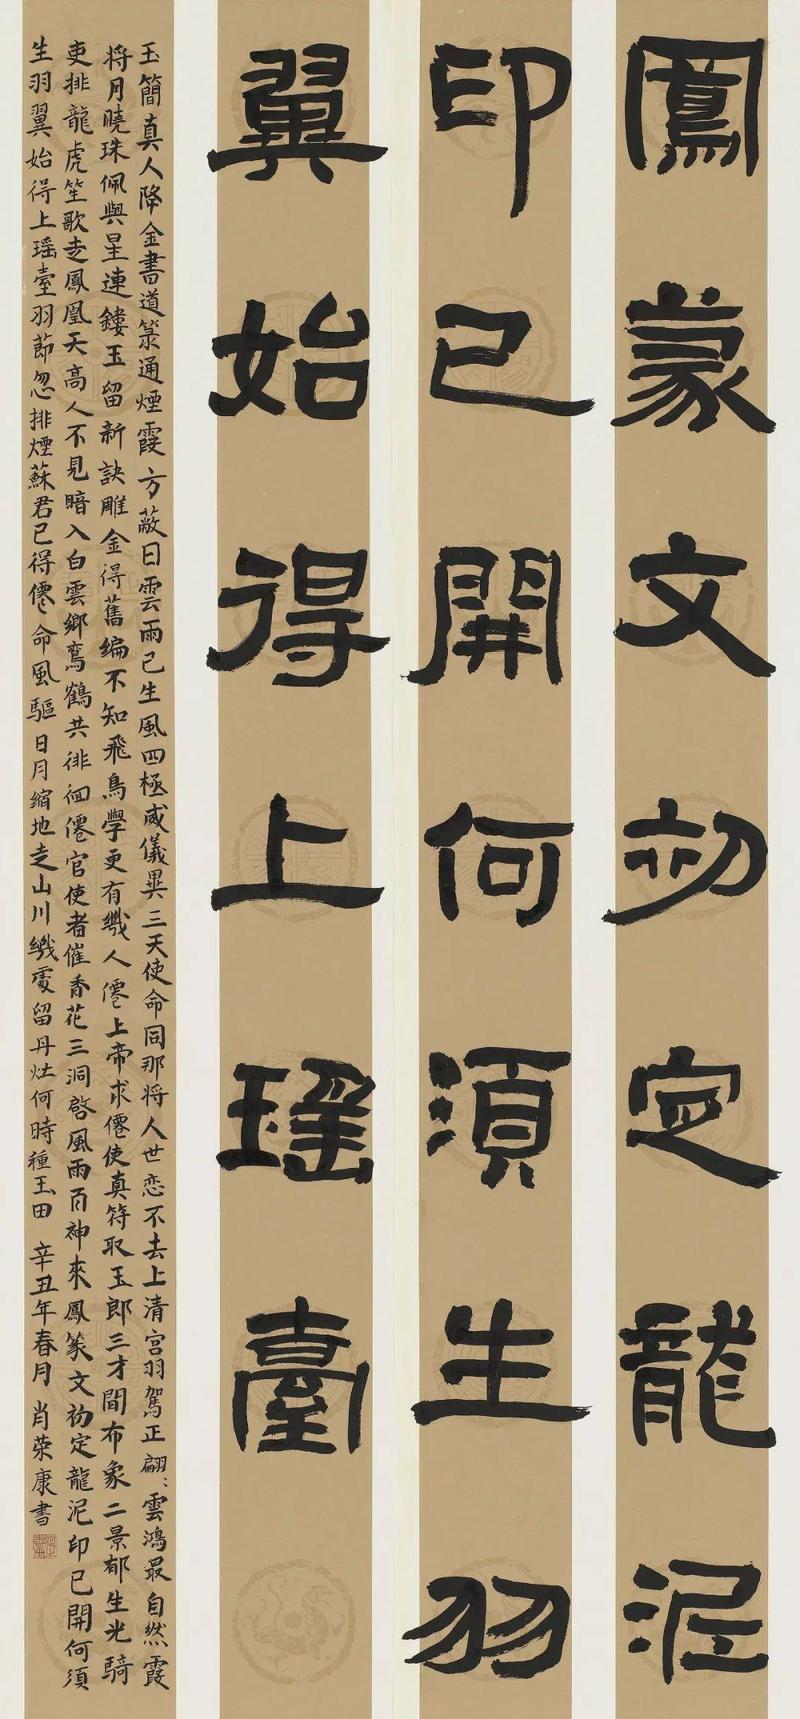 鳳篆文初定龍泥
印已開何須生羽
翼始得上瑤臺
玉簡真人降金書道籙通煙霞方蔽日雲雨已生風四極威儀異三天使命同那將人世戀不去上清宮羽駕正翩:雲鴻最自然霞
將月曉珠佩與星連鏤玉留新訣雕金得舊編不知飛鳥學更有幾人僊上帝求僊使真符取玉郎三才閒布象二景郁生光騎
吏排龍虎笙歌走鳳凰天高人不見暗入白雲鄉鸞鶴共徘徊僊官使者催香花三洞啓風雨百神來鳳篆文初定龍泥印已開何須
生羽翼始得上瑤臺羽節忽排煙蘇君已得僊命風驅日月縮地走山川幾處留丹灶何時種玉田 辛丑年春月 肖荣康書